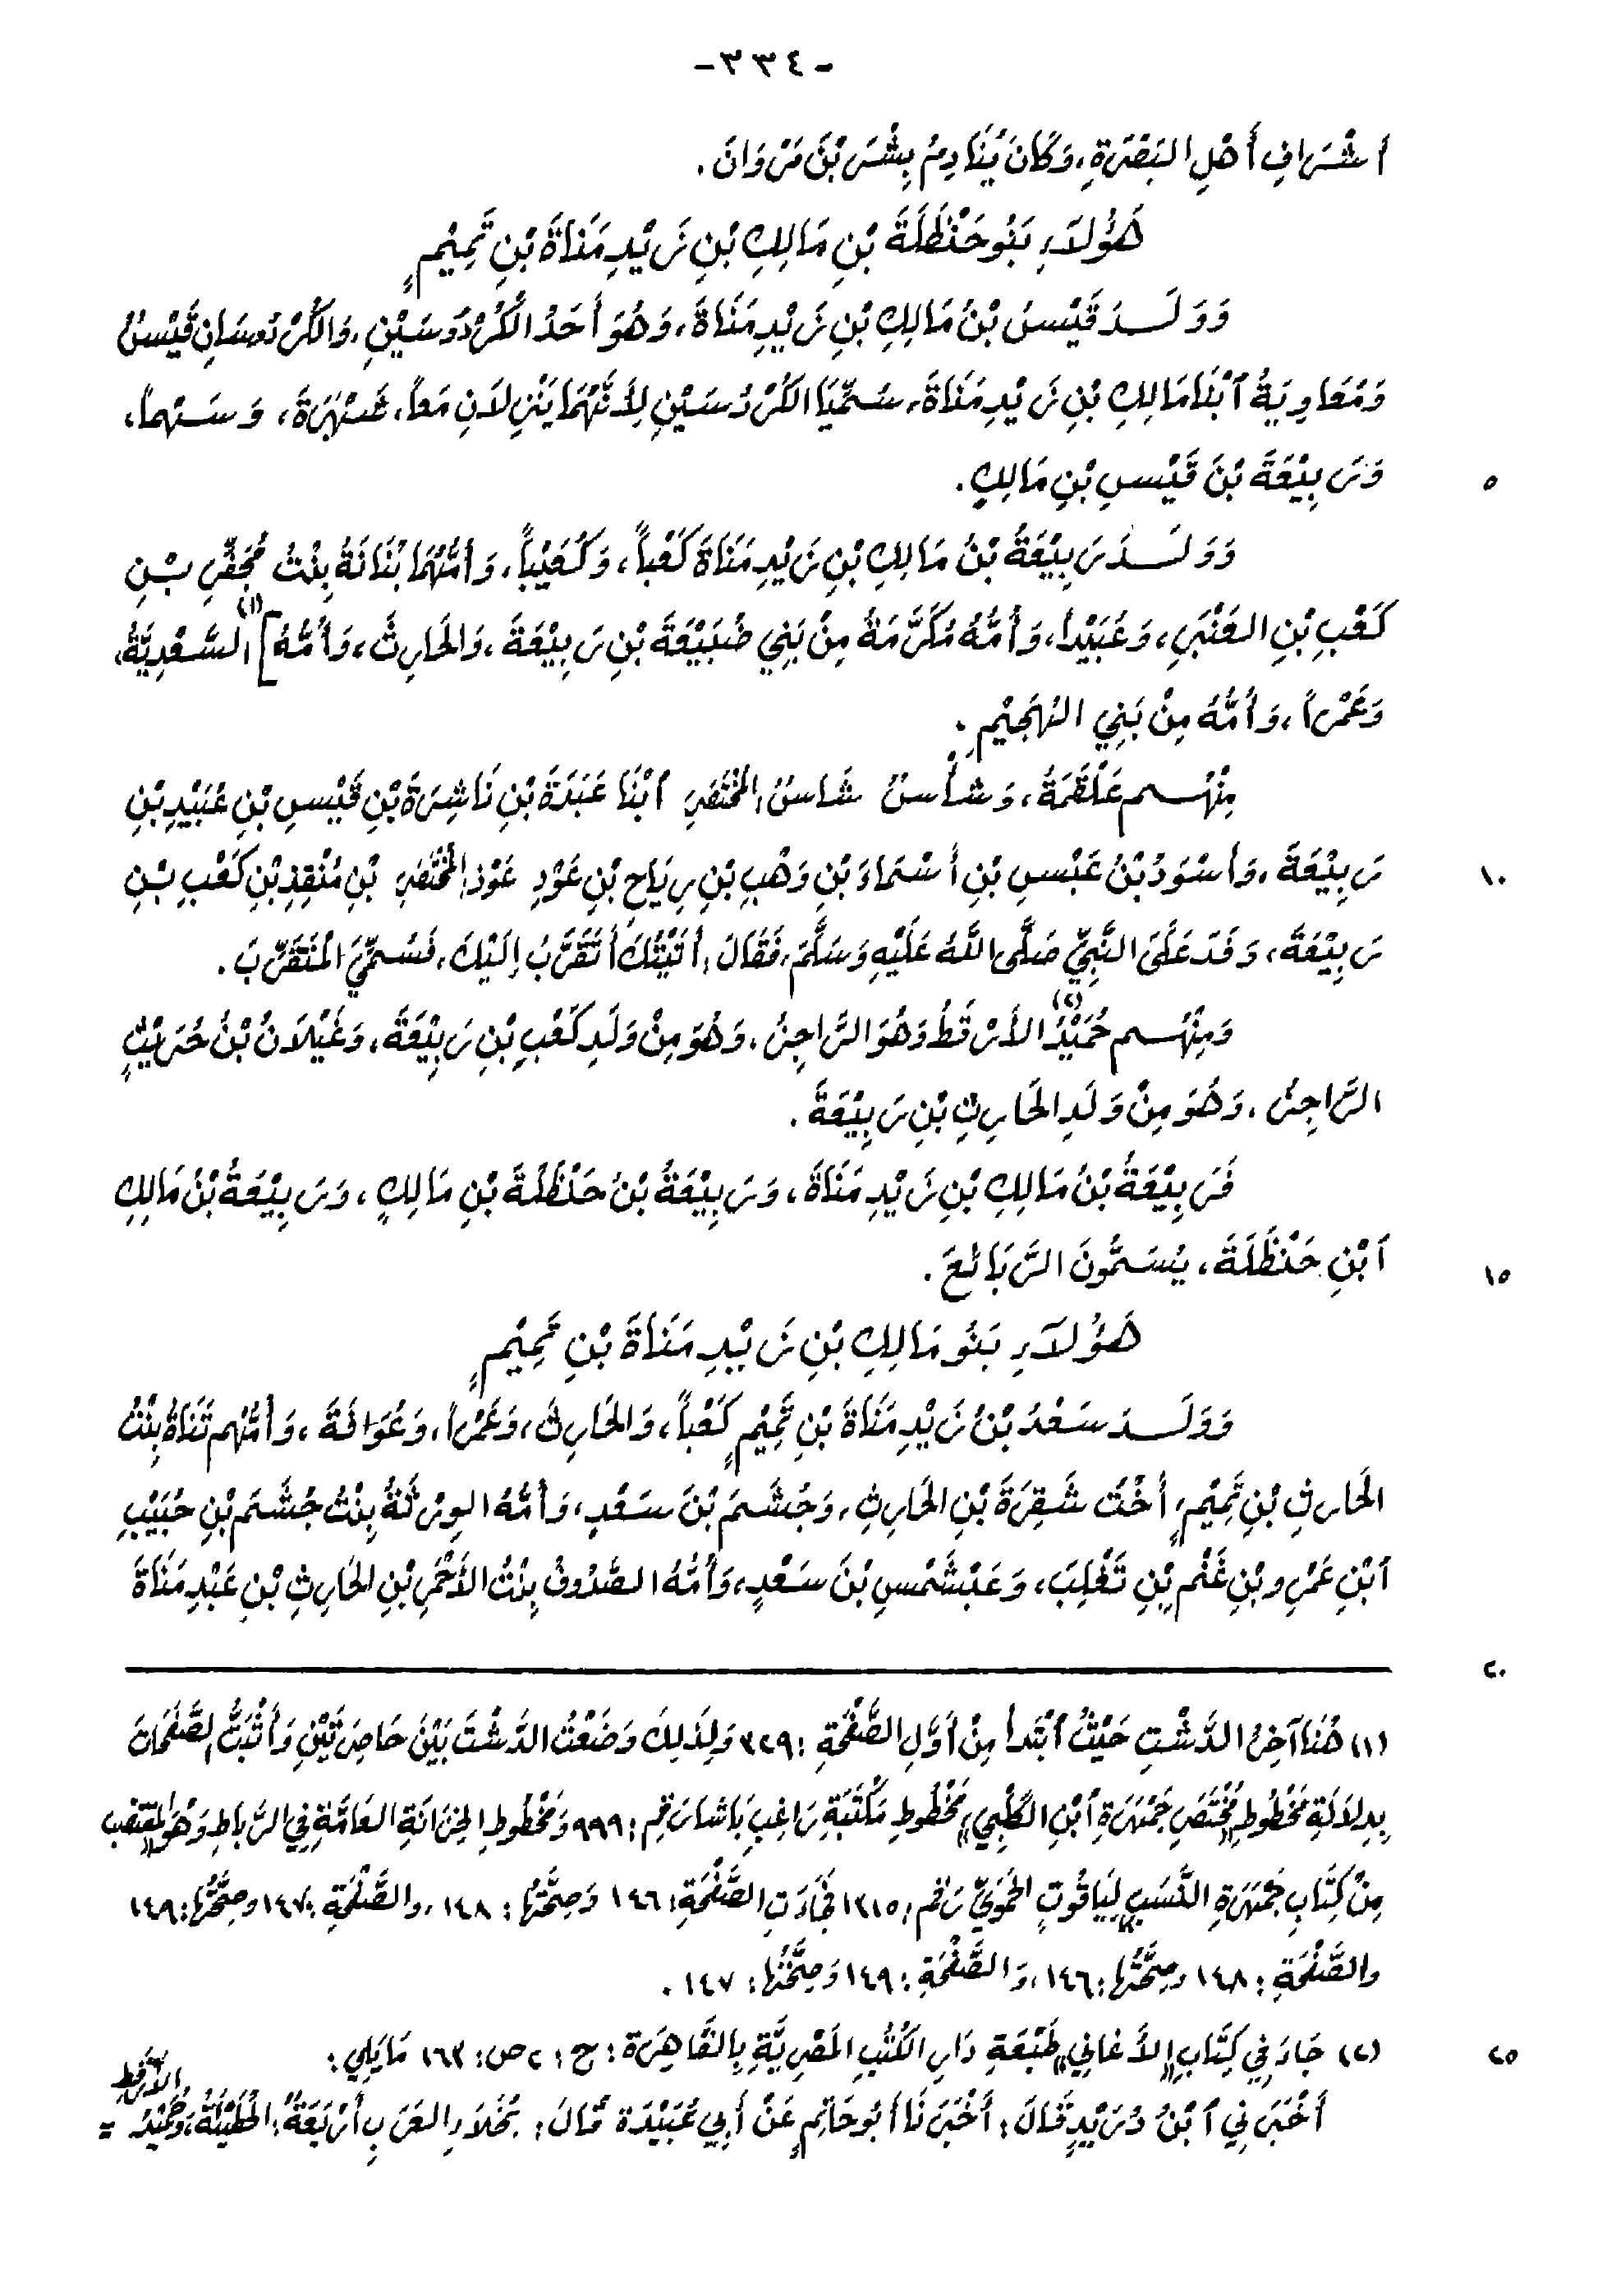 -٣٣٤-
أَشْرَافِ أَهْلِ البَصْرَةِ، وَكَانَ يُنَادِمُ بِشْرَ بْنَ مَرْوَانَ.
هَؤُلاَءِ بَنُو حَنْظَلَةَ بْنِ مَالِكِ بْنِ زَيْدِ مَنَاةَ بْنِ تَمِيْمٍ
وَوَلَدَ قَيْسُ بْنُ مَالِكِ بْنِ زَيْدِ مَنَاةَ، وَهُوَ أَحَدُ الكُرْدُوسَيْنِ، وَالكُرْدُوسَانِ قَيْسُ
وَمُعَاوِيَةُ ٱبْنَا مَالِكِ بْنِ زَيْدِ مَنَاةَ، سُمِّيَا الكُرْدُسَيْنِ لِأَنَّهُمَا يَنْزِلاَنِ مَعاً، شَهْرَةَ، وَسَهْماً،
٥ وَرَبِيْعَةَ بْنَ قَيْسِ بْنِ مَالِكٍ.
وَوَلَدَ رَبِيْعَةُ بْنُ مَالِكِ بْنِ زَيْدِ مَنَاةَ كَعْباً، وَكُعَيْباً، وَأُمُّهُمَا بُنَانَةُ بِنْتُ مُجَفِّرِ بْنِ
كَعْبِ بْنِ العَنْبَرِ، وَعُبَيْداً، وَأُمُّهُ مُكَرَّمَةُ مِنْ بَنِي ضُبَيْعَةَ بْنِ رَبِيْعَةَ، وَالحَارِثَ، وَأُمُّهُ](١) السَّعْدِيَّةُ،
وَعَمْراً، وَأُمُّهُ مِنْ بَنِي الهُجَيْمِ.
مِنْهُم عَلْقَمَةُ، وَشَأْسُ شَاسُ، المُخْتَصَرِ ٱبْنَا عَبَدَةَ بْنِ نَاشِرَةَ بْنِ قَيْسِ بْنِ عُبَيْدِ بْنِ
١٠ رَبِيْعَةَ، وَأَسْوَدُ بْنُ عَبْسِ بْنِ أَسْمَاءَ بْنِ وَهْبِ بْنِ رِيَاحِ بْنِ عَوْدِ عَوْذ، المُخْتَصَرِ بْنِ مُنْقِذِ بْنِ كَعْبِ بْنِ
رَبِيْعَةَ، وَفَدَ عَلَى النَّبِيِّ صَلَّى اللَّهُ عَلَيْهِ وَسَلَّمَ، فَقَالَ: أَتَيْتُكَ أَتَقَرَّبُ إِلَيْكَ، فَسُمِّيَ المُتَقَرِّبَ.
وَمِنْهُم حُمَيْدُ(٢) الأَرْقَطُ وَهُوَ الرَّاجِزُ، وَهُوَ مِنْ وَلَدِ كَعْبِ بْنِ رَبِيْعَةَ، وَغَيْلاَنُ بْنُ حُرَيْثٍ
الرَّاجِزُ، وَهُوَ مِنْ وَلَدِ الحَارِثِ بْنِ رَبِيْعَةَ.
فَرَبِيْعَةُ بْنُ مَالِكِ بْنِ زَيْدِ مَنَاةَ، وَرَبِيْعَةُ بْنُ حَنْظَلَةَ بْنِ مَالِكٍ، وَرَبِيْعَةُ بْنُ مَالِكِ
١٥ ٱبْنِ حَنْظَلَةَ، يُسَمُّونَ الرَّبَائِعَ.
هَؤُلآَءِ بَنُو مَالِكِ بْنِ زَيْدِ مَنَاةَ بْنِ تَمِيْمٍ
وَوَلَدَ سَعْدُ بْنُ زَيْدِ مَنَاةَ بْنِ تَمِيْمٍ كَعْباً، وَالحَارِثَ، وَعَمْراً، وَعُوَافَةَ، وَأُمُّهُم تَنَاةُ بِنْتُ
الحَارِثِ بْنِ تَمِيْمٍ، أُخْتُ شَقِرَةَ بْنِ الحَارِثِ، وَجُشَمَ بْنَ سَعْدٍ، وَأُمُّهُ الوِرْثَةُ بِنْتُ جُشَمَ بْنِ حُبَيْبِ
ٱبْنِ عَمْرِو بْنِ غَنْمِ بْنِ تَغْلِبَ، وَعَبْشَمْسِ بْنَ سَعْدٍ، وَأُمُّهُ الصَّدُوفُ بِنْتُ الأَحْمَرِ بْنِ الحَارِثِ بْنِ عَبْدِ مَنَاةَ
٢٠
(١) هُنَا آخِرُ الدَّشْتِ حَيْثُ ٱبْتَدَأَ مِنْ أَوَّلِ الصَّفْحَةِ: ٣٢٩ وَلِذَلِكَ وَضَعْتُ الدَّشْتَ بَيْنَ حَاصِرَتَيْنِ وَأَثْبَتُّ الصَّفَحَاتَ
بِدِلاَلَةِ مَخْطُوطِ «مُخْتَصَرِ جَمْهَرَةِ ٱبْنِ الكَلْبِي» مَخْطُوطِ مَكْتَبَةِ رَاغِبَ بَاشا رَقم: ٩٩٩ وَمَخْطُوطِ الخِزَانَةِ العَامَّةِ فِي الرَّبَاطِ وَهُوَ «المُقتضب
مِنْ كِتَابِ جَمْهَرَةِ النَّسَبِ» لِيَاقُوتٍ الحَمَوِيِّ رَقم: ١٣١٥ فَجَاءَتِ الصَّفْحَةِ: ١٤٦ وَصِحَّتُهَا: ١٤٨، والصَّفْحَةِ: ١٤٧ وصِحَّتُهَا: ١٤٩
والصَّفْحَةِ: ١٤٨ وصِحَّتُهَا: ١٤٦، وَالصَّفْحَةِ: ١٤٩ وَصِحَّتُهَا: ١٤٧.
٢٥ (٢) جَاءَ فِي كِتَابِ «الأَغَانِي» طَبْعَةِ دَارِ الكُتُبِ المَصْرِيَّةِ بِالقَاهِرَةِ: ج: ٢ ص: ١٦٣ مَا يَلِي:
أَخْبَرَنِي ٱبْنُ دُرَيْدٍ قَالَ: أَخْبَرَنَا أَبُو حَاتِمٍ عَنْ أَبِي عُبَيْدَةَ قَالَ: بُخَلاَءُ العَرَبِ أَرْبَعَةٌ: الحُطَيْئَةُ، وَحُمَيْدُ الأَرْقَطُ =